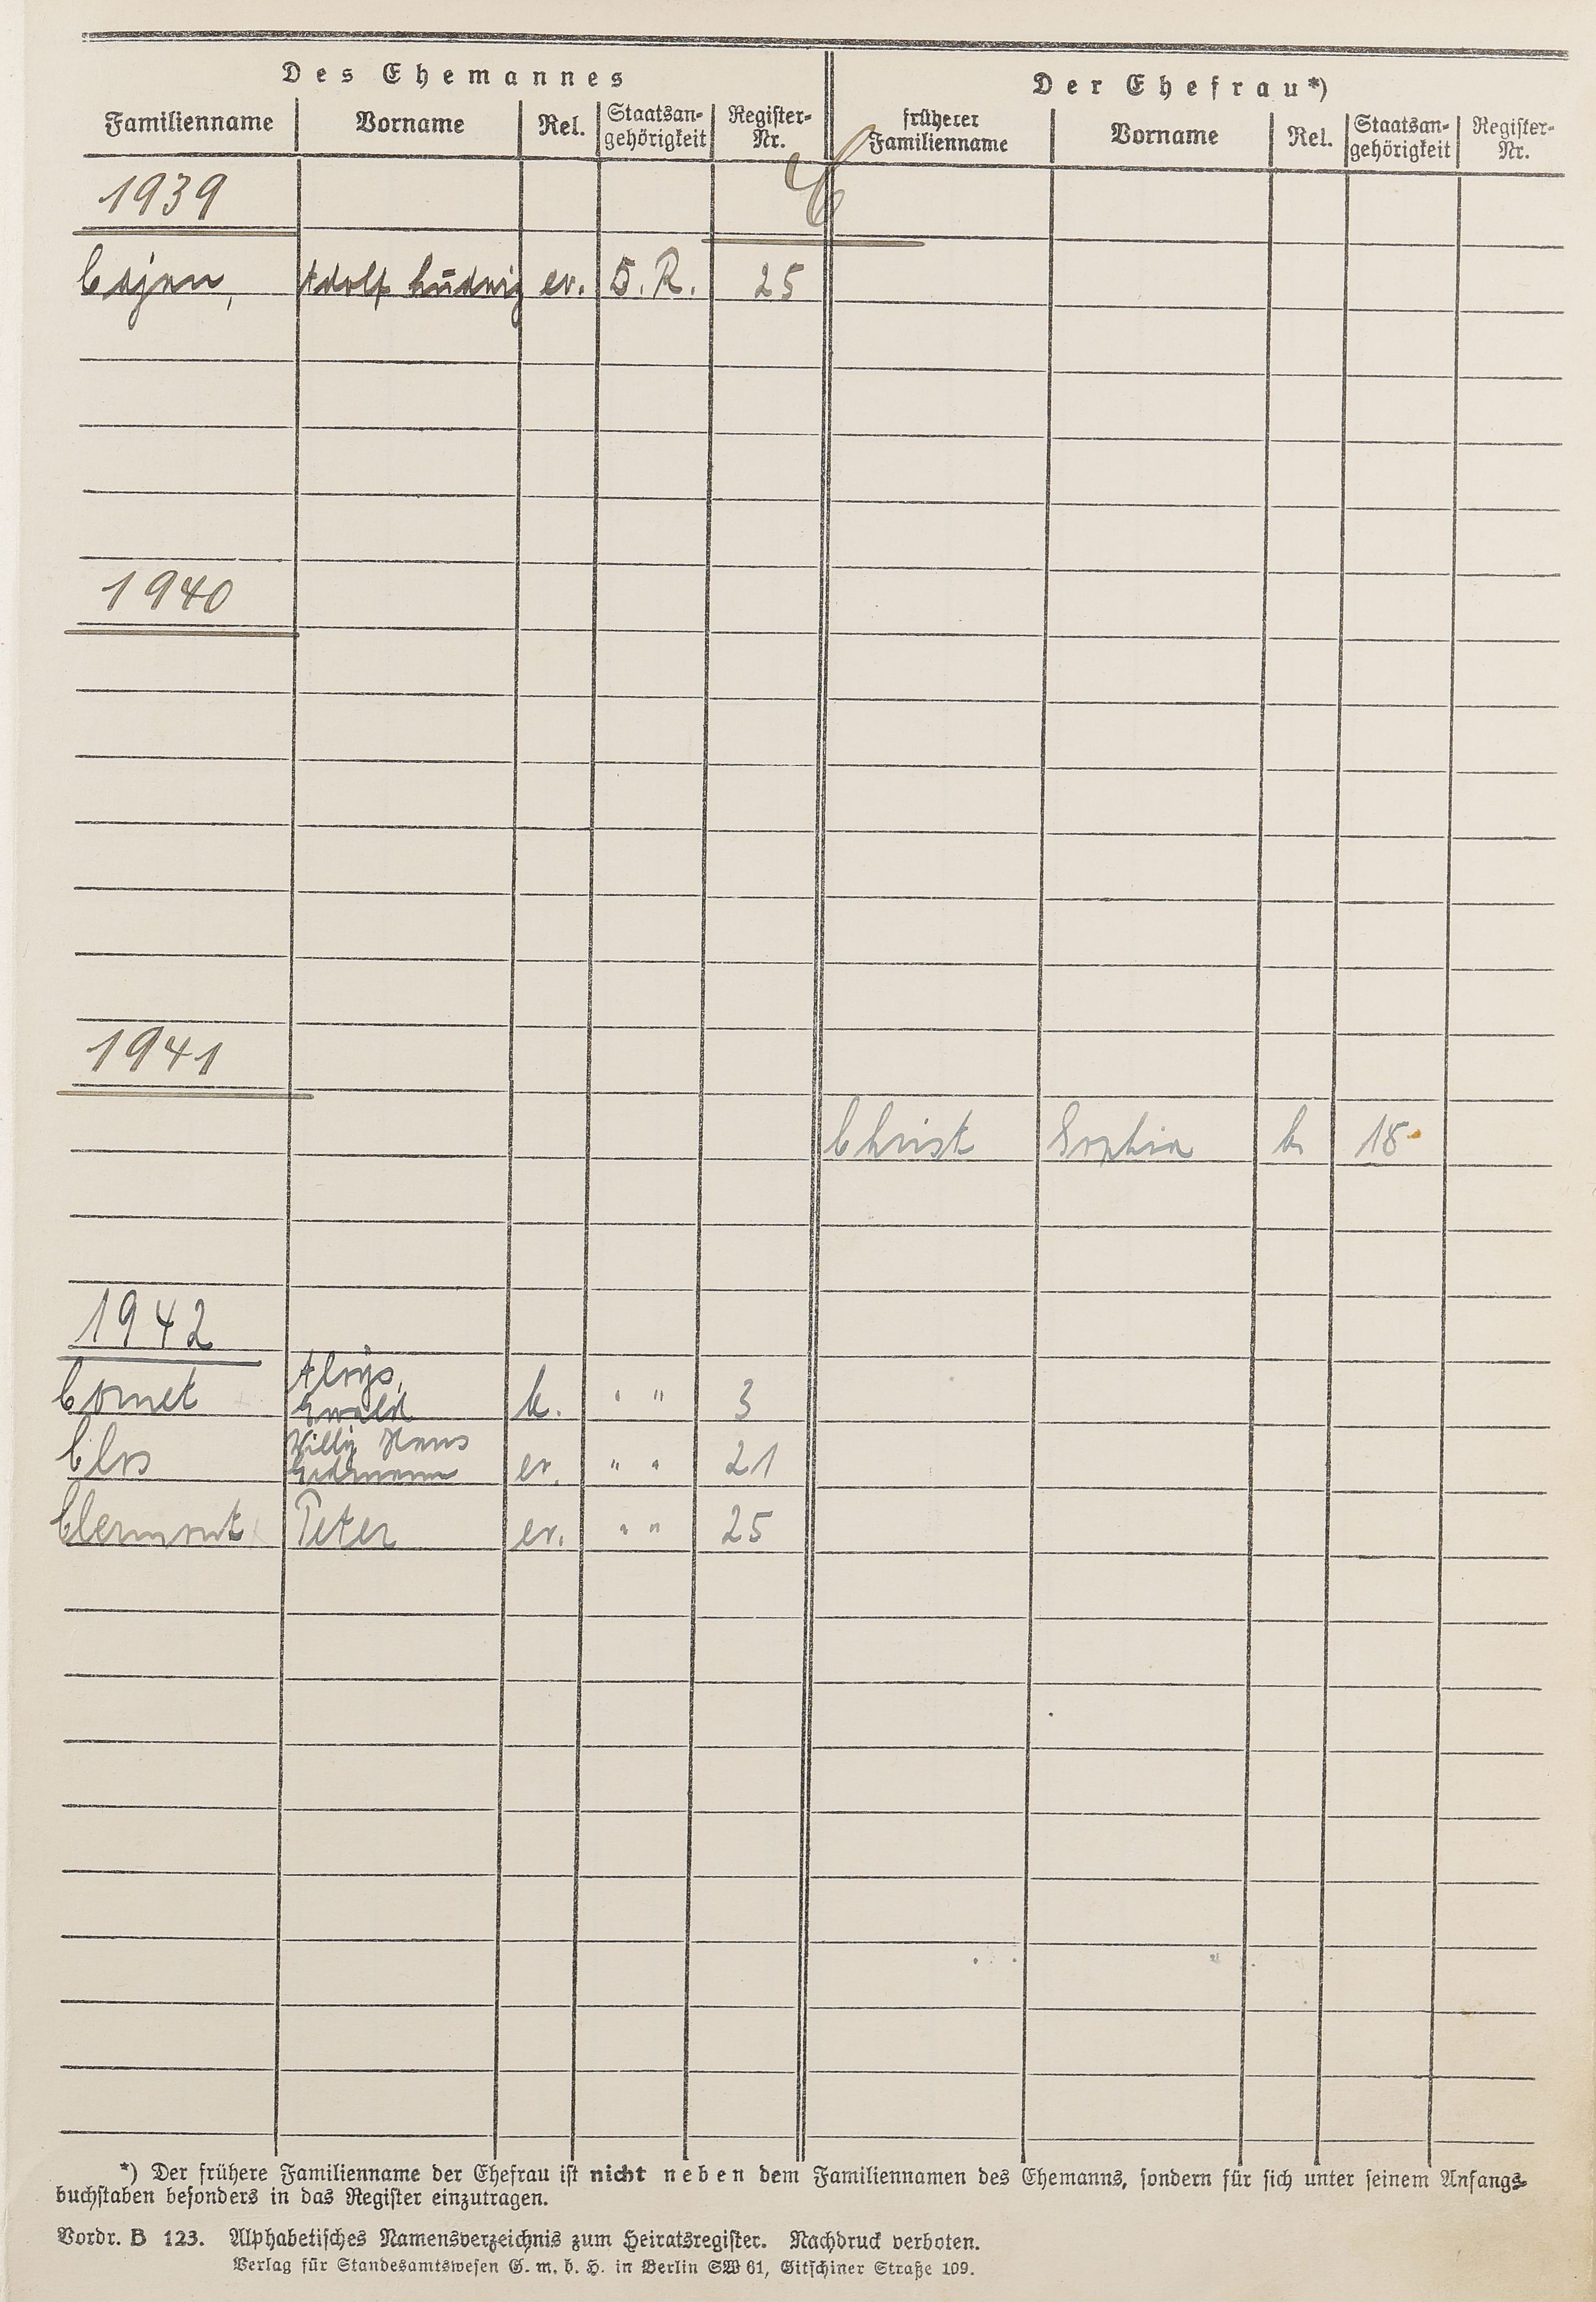 Des Ehemannes
Der Ehefrau*)
Familienname Vorname Rel. Staatsan-gehörigkeit Register-Nr. früherer Familienname Vorname Rel. Staatsan-gehörigkeit Register-Nr.
C
1939
Adolf Ludwig ev. D. R. 25
1940
1941
Christ Sophia k 18
1942
Cornet Aloys, Ewald k. " " 3
Willy Hans ev. " " 21
Clermont Peter ev. " " 25
*) Der frühere Familienname der Ehefrau ist nicht neben dem Familiennamen des Ehemanns, sondern für sich unter seinem Anfangs-
buchstaben besonders in das Register einzutragen.
Vordr. B 123. Alphabetisches Namensverzeichnis zum Heiratsregister. Nachdruck verboten.
Verlag für Standesamtswesen G. m. b. H. in Berlin SW 61, Gitschiner Straße 109.